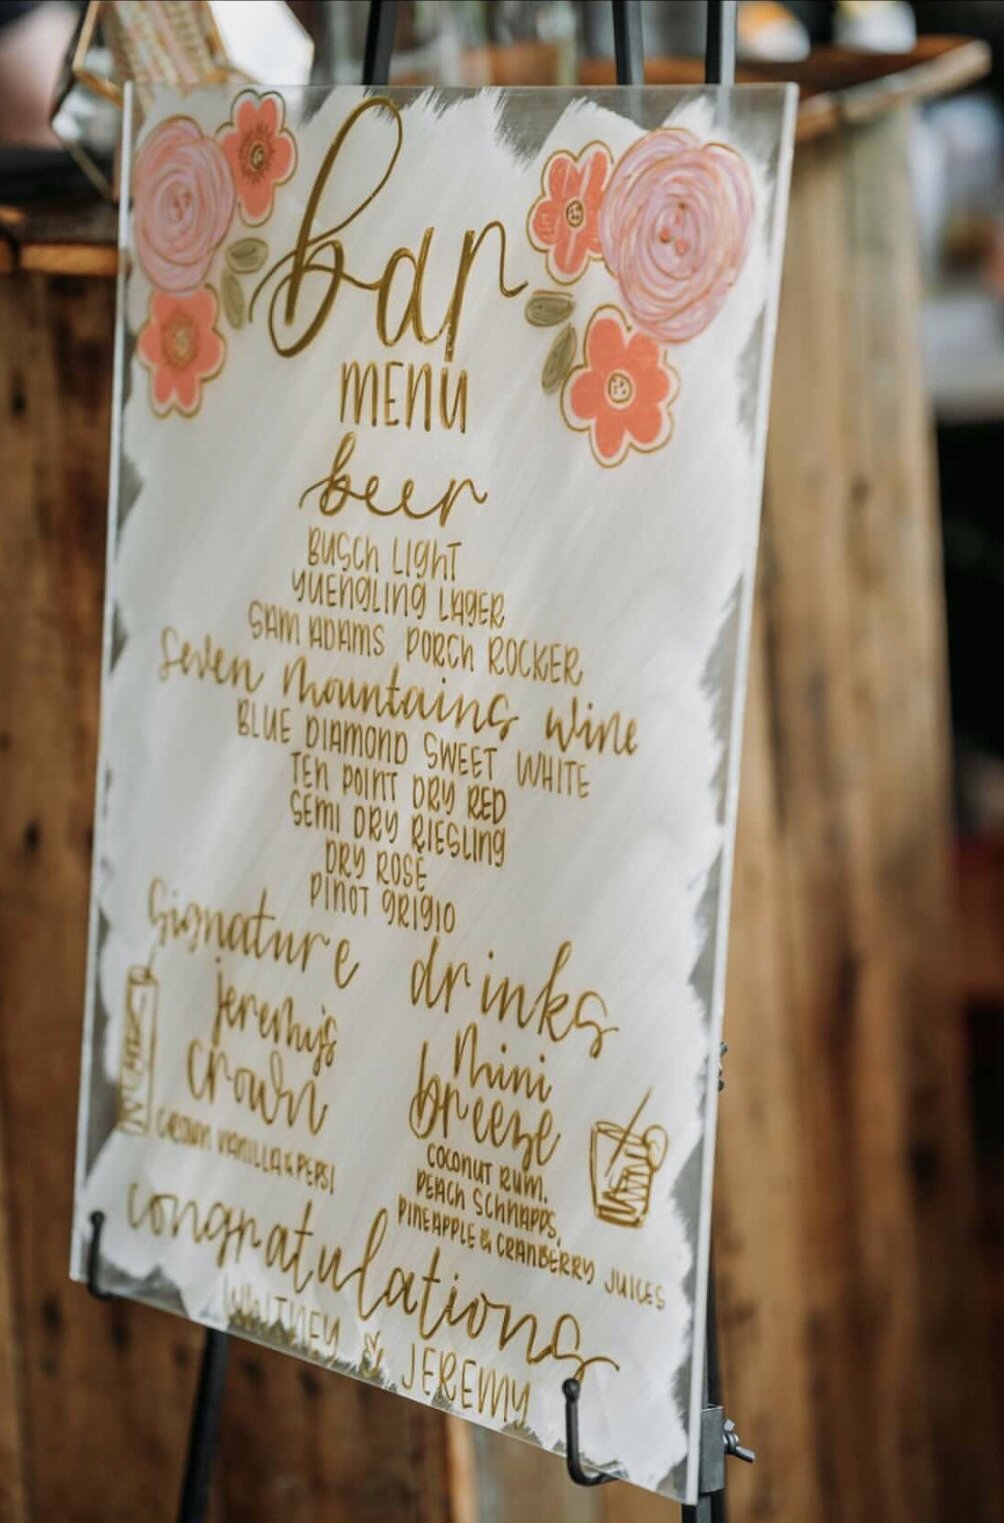 bar
MENU
beer
BUSCH LIGHT
YUENGLING LAGER
SAM ADAMS PORCH ROCKER
Seven Mountains Wine
BLUE DIAMOND SWEET WHITE
TEN POINT DRY RED
SEMI DRY RIESLING
DRY ROSÉ
PINOT GRIGIO
Signature drinks
Jeremy's
Crown
CROWN VANILLA & PEPSI
Mini
breeze
COCONUT RUM,
PEACH SCHNAPPS,
PINEAPPLE & CRANBERRY JUICES
Congratulations
WHITNEY & JEREMY